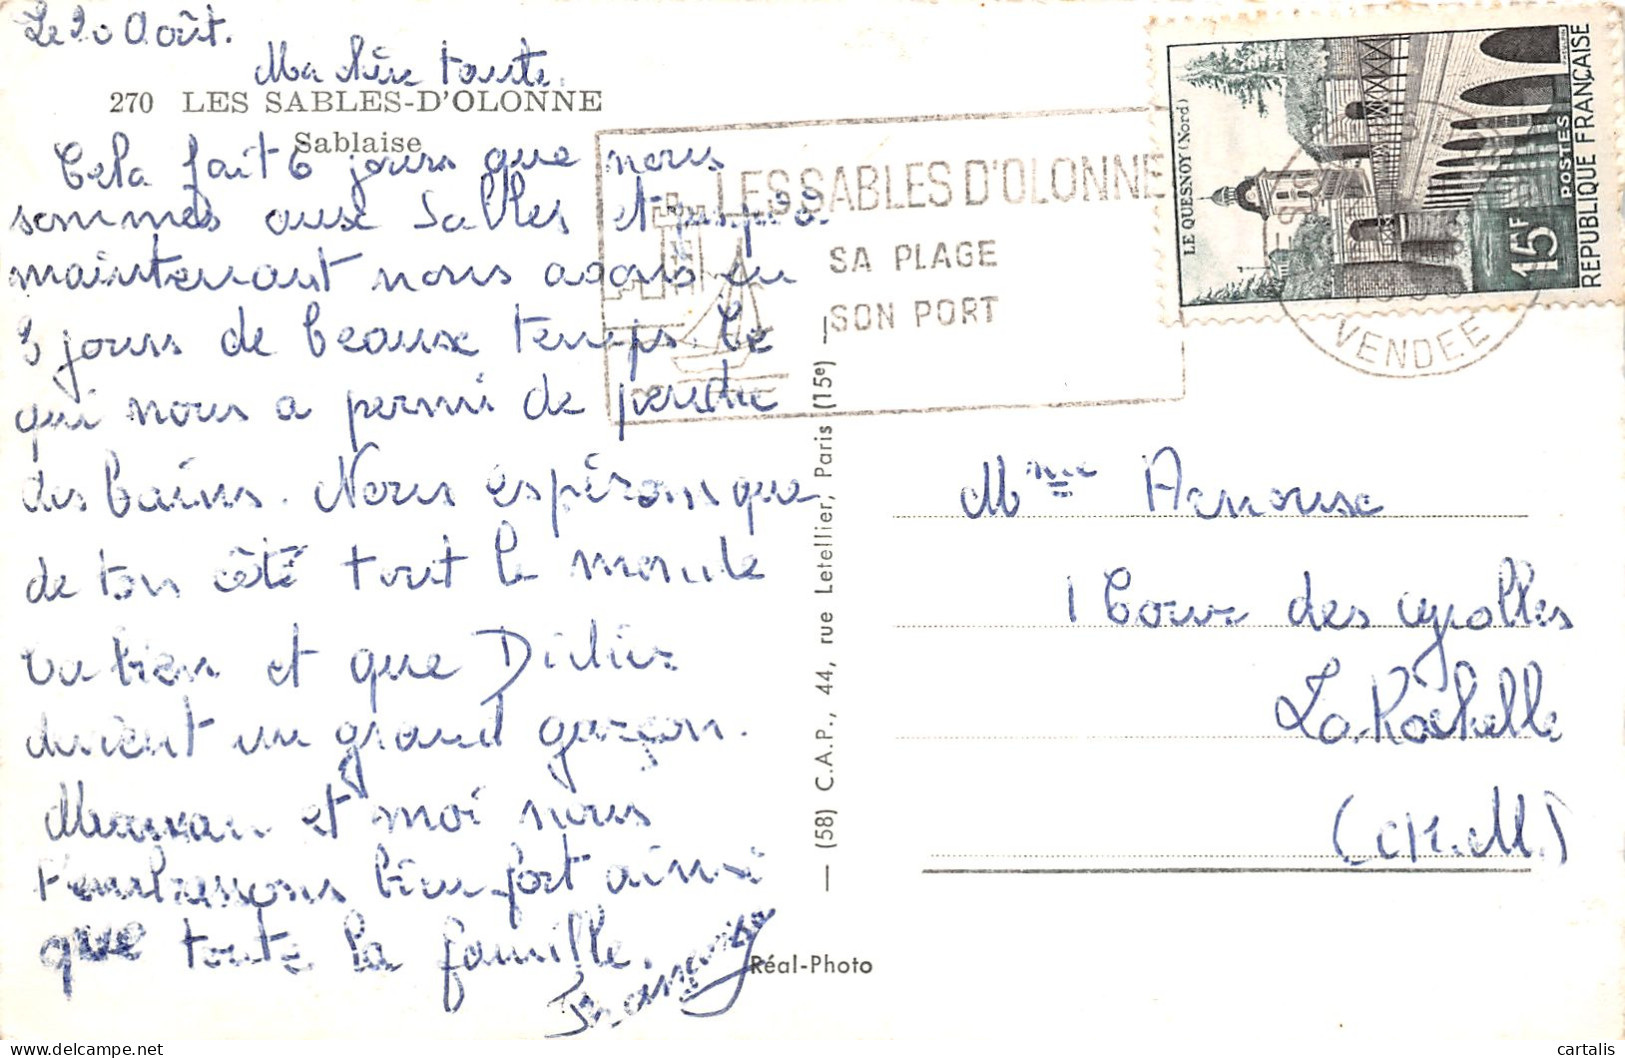 Le 20 Août.
Ma chère tante.
270 LES SABLES-D'OLONNE
Sablaise
Cela fait 6 jours que nous
sommes aux Sables et jusqu'à
maintenant nous avons eu
3 jours de beaux temps. Ce
qui nous a permi de prendre
des bains. Nous espérons que
de ton côté tout le monde
va bien et que Didier
devient un grand garçon.
Maman et moi nous
t'embrassons bien fort ainsi
que toute la famille.
LES SABLES D'OLONNE
SA PLAGE
SON PORT
VENDEE
LE QUESNOY (Nord)
15F
POSTES
REPUBLIQUE FRANÇAISE
— (58) C.A.P., 44, rue Letellier, Paris (15e) —
Réal-Photo
Mme Arnoux
1 Cour des
La Rochelle
(Ch. M.)
cartalis